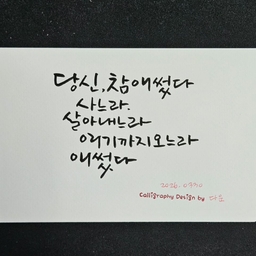 당신, 참 애썼다
사느라.
살아내느라
여기까지오느라
애썼다
Calligraphy Design by